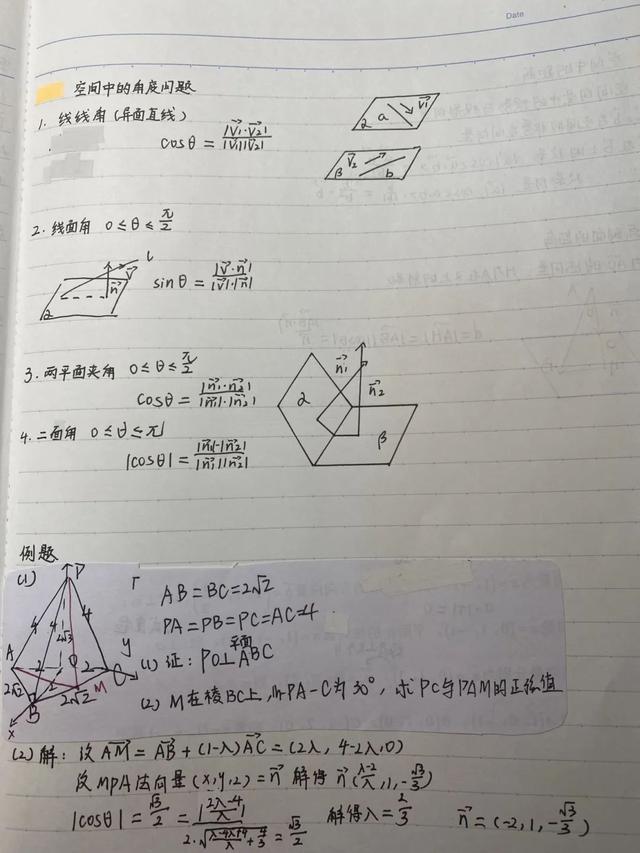 Date
空间中的角度问题
1. 线线角(异面直线)
cosθ = |v₁·v₂| / |v₁||v₂|
α a v₁
β v₂ b
2. 线面角 0≤θ≤π/2
l v n α
sinθ = |v·n| / |v|·|n|
3. 两平面夹角 0≤θ≤π/2
cosθ = |n₁·n₂| / |n₁|·|n₂|
α n₁ n₂ β
4. 二面角 0≤θ≤π
|cosθ| = |n₁·n₂| / |n₁||n₂|
例题
(1)
P 4 4 4 2√3 A 2 O 2 C y 2√2 2 B 2√2 M x
AB=BC=2√2
PA=PB=PC=AC=4.
(1) 证: PO⊥平面ABC
(2) M在棱BC上, M-PA-C为30°, 求PC与PAM的正弦值
(2) 解: 设AM = AB + (1-λ)AC = (2λ, 4-2λ, 0)
设MPA法向量(x,y,z)=n 解得 n(λ-2/λ, 1, -√3/3)
|cosθ| = √3/2 = |2λ-4/λ| / 2·√λ-4λ+4/λ + 4/3 = √3/2 解得λ=2/3 n=(-2, 1, -√3/3)